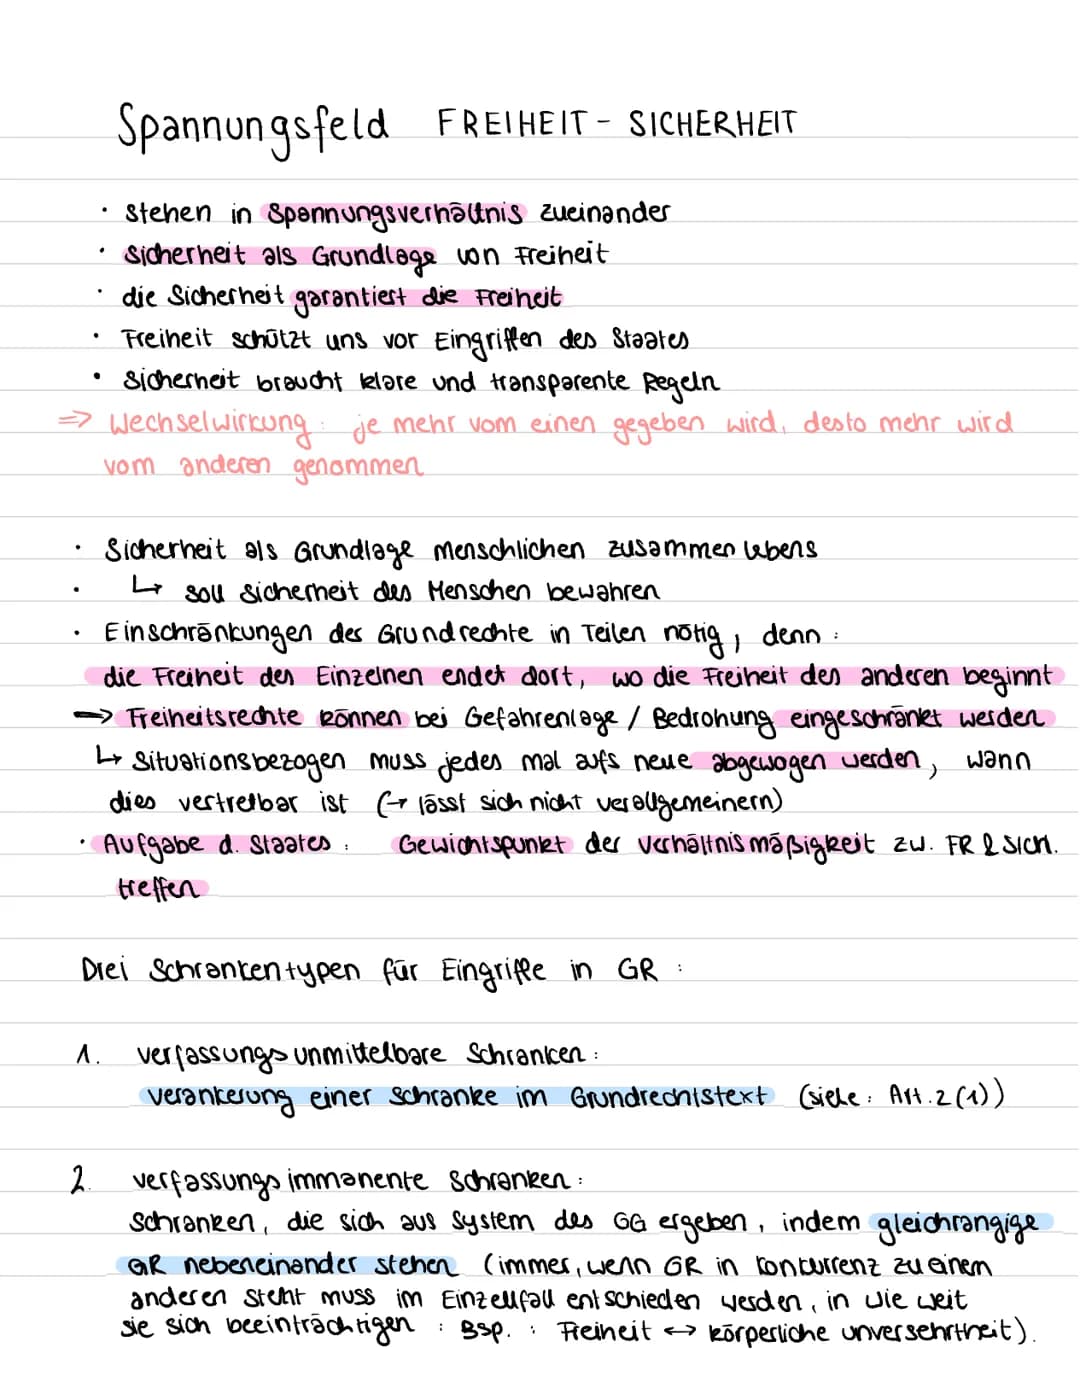 Spannungsfeld FREIHEIT - SICHERHEIT
· stehen in Spannungsverhältnis zueinander
· Sicherheit als Grundlage von Freiheit
· die Sicherheit garantiert die Freiheit
· Freiheit schützt uns vor Eingriffen des Staates
· Sicherheit braucht klare und transparente Regeln
=> Wechselwirkung: je mehr vom einen gegeben wird, desto mehr wird
vom anderen genommen
· Sicherheit als Grundlage menschlichen zusammen lebens
· ↳ soll Sicherheit des Menschen bewahren
· Einschränkungen des Grundrechte in Teilen nötig, denn:
die Freiheit des Einzelnen endet dort, wo die Freiheit des anderen beginnt
=> Freiheitsrechte können bei Gefahrenlage / Bedrohung eingeschränkt werden
↳ Situationsbezogen muss jedes mal aufs neue abgewogen werden, wann
dies vertretbar ist (→ lässt sich nicht verallgemeinern)
· Aufgabe d. Staates: Gewichtspunkt der Verhältnismäßigkeit zw. FR & SICH.
treffen
Drei Schrankentypen für Eingriffe in GR:
1. verfassungsunmittelbare Schranken:
Verankerung einer Schranke im Grundrechtstext (siehe: Art. 2 (1))
2. verfassungsimmanente Schranken:
Schranken, die sich aus System des GG ergeben, indem gleichrangige
GR nebeneinander stehen (immer, wenn GR in Konkurrenz zu einem
anderen steht muss im Einzellfall entschieden werden, in wie weit
sie sich beeinträchtigen: Bsp.: Freiheit ↔ körperliche unversehrtheit).